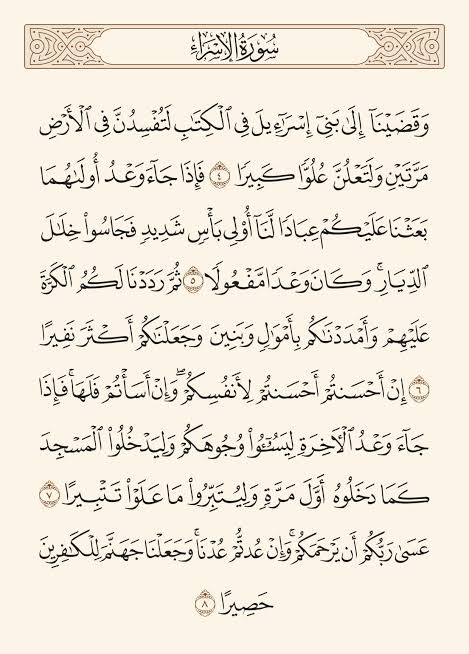 سُورَةُ الإِسْرَاءِ
وَقَضَيْنَآ إِلَىٰ بَنِىٓ إِسْرَٰٓءِيلَ فِى ٱلْكِتَٰبِ لَتُفْسِدُنَّ فِى ٱلْأَرْضِ
مَرَّتَيْنِ وَلَتَعْلُنَّ عُلُوًّا كَبِيرًا ٤ فَإِذَا جَآءَ وَعْدُ أُولَىٰهُمَا
بَعَثْنَا عَلَيْكُمْ عِبَادًا لَّنَآ أُو۟لِى بَأْسٍ شَدِيدٍ فَجَاسُوا۟ خِلَٰلَ
ٱلدِّيَارِ ۚ وَكَانَ وَعْدًا مَّفْعُولًا ٥ ثُمَّ رَدَدْنَا لَكُمُ ٱلْكَرَّةَ
عَلَيْهِمْ وَأَمْدَدْنَٰكُم بِأَمْوَٰلٍ وَبَنِينَ وَجَعَلْنَٰكُمْ أَكْثَرَ نَفِيرًا
٦ إِنْ أَحْسَنتُمْ أَحْسَنتُمْ لِأَنفُسِكُمْ ۖ وَإِنْ أَسَأْتُمْ فَلَهَا ۚ فَإِذَا
جَآءَ وَعْدُ ٱلْءَاخِرَةِ لِيَسُـۥٓـُٔوا۟ وُجُوهَكُمْ وَلِيَدْخُلُوا۟ ٱلْمَسْجِدَ
كَمَا دَخَلُوهُ أَوَّلَ مَرَّةٍ وَلِيُتَبِّرُوا۟ مَا عَلَوْا۟ تَتْبِيرًا ٧
عَسَىٰ رَبُّكُمْ أَن يَرْحَمَكُمْ ۚ وَإِنْ عُدتُّمْ عُدْنَا ۘ وَجَعَلْنَا جَهَنَّمَ لِلْكَٰفِرِينَ
حَصِيرًا ٨